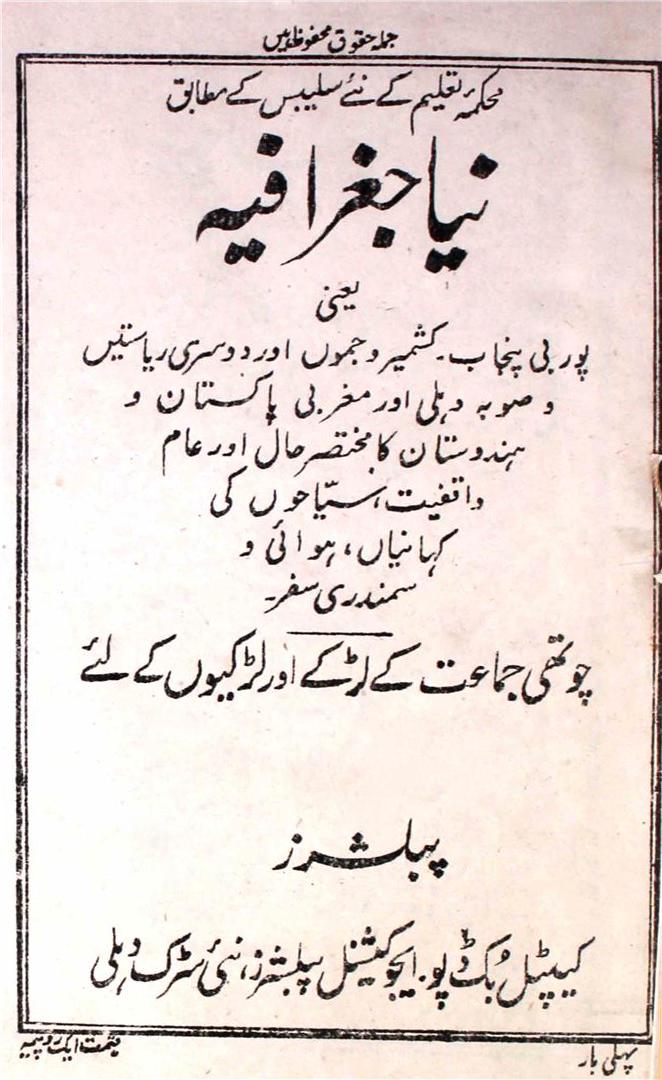 جملہ حقوق محفوظ ہیں
محکمۂ تعلیم کے نئے سلیبس کے مطابق
نیا جغرافیہ
یعنی
پوربی پنجاب۔ کشمیر و جموں اور دوسری ریاستیں
و صوبہ دہلی اور مغربی پاکستان و
ہندوستان کا مختصر حال اور عام
واقفیت، سیّاحوں کی
کہانیاں، ہوائی و
سمندری سفر۔
چوتھی جماعت کے لڑکے اور لڑکیوں کے لئے
پبلشرز
کیپٹل بُک ڈپو۔ ایجوکیشنل پبلشرز، نئی سڑک دہلی
پہلی بار
قیمت ایک روپیہ